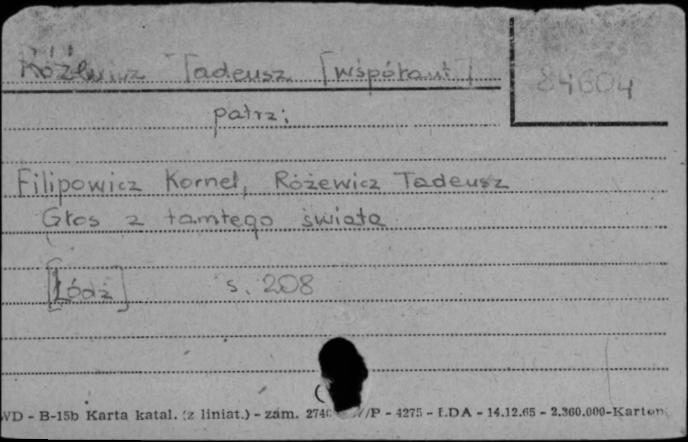 Różewicz Tadeusz [współaut]
84604
patrz:
Filipowicz Kornel, Różewicz Tadeusz
Głos z tamtego świata
[Łódź] s. 208
WD - B-15b Karta katal. (z liniat.) - zam. /P - 4275 - ŁDA - 14.12.65 - 2.360.000-Karton